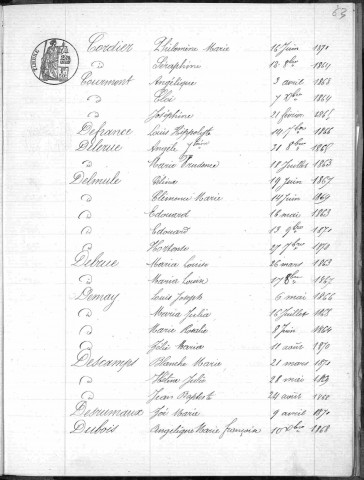 Cordier Philomène Marie 16 Juin 1870
d° Séraphine 12 8bre
Courmont Angélique 3 avril 1863
d° Elex 7 Xbre 1864
d° Joséphine 21 février 1865
Defrance Louis Hippolyte 14 7bre 1866
Angèle 21 8bre
d° Marie Prudence 18 Juillet 1863
Delmule 19 Juin 1867
d° Clémence Marie 14 Juin 1869
d° Edouard 16 mai 1863
d° Edouard 13 9bre 1870
d° Hortense 27 7bre
Maria Louise 26 mars 1863
d° Maria Louise 17 8bre 1867
Demay Louis Joseph 6 mai 1866
d° Maria Julia 16 Juillet 1868
d° Marie Rosalie 8 Juin 1864
d° Maria 11 août 1870
Descamps Blanche Marie 21 mars 1870
d° Julie 28 mai
d° Jean Baptiste 24 avril
Desrumaux Zoé Marie 9 avril 1870
Dubois Angélique Marie françoise 10 Xbre 1868